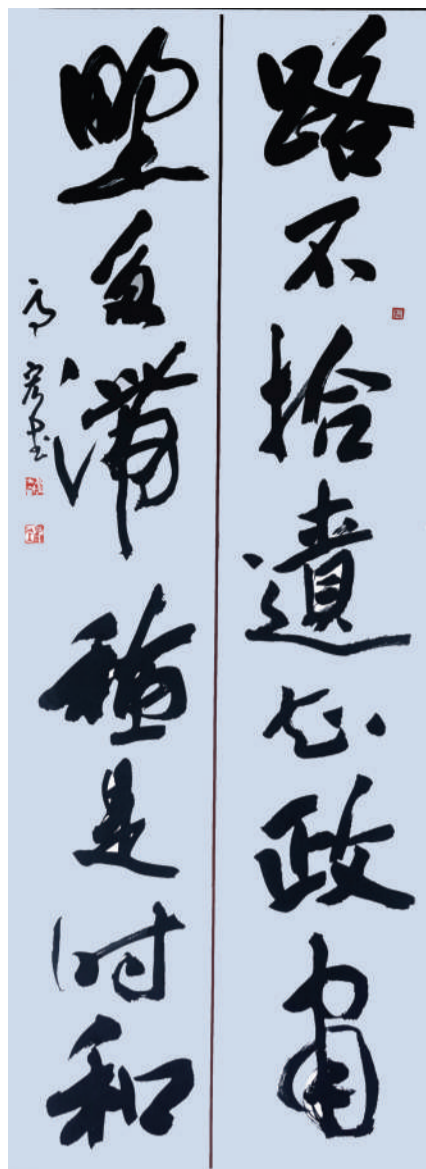 路不拾遺知政肅
野多滯穗是時和
書